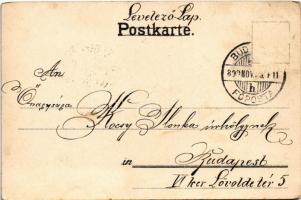 Levelező-Lap.
Postkarte.
BUD
899 NOV.
FŐPOSTA
An
Őnagysága
Kocsy Ilonka úrhölgynek
in
Budapest
VI ker Lövölde tér 5